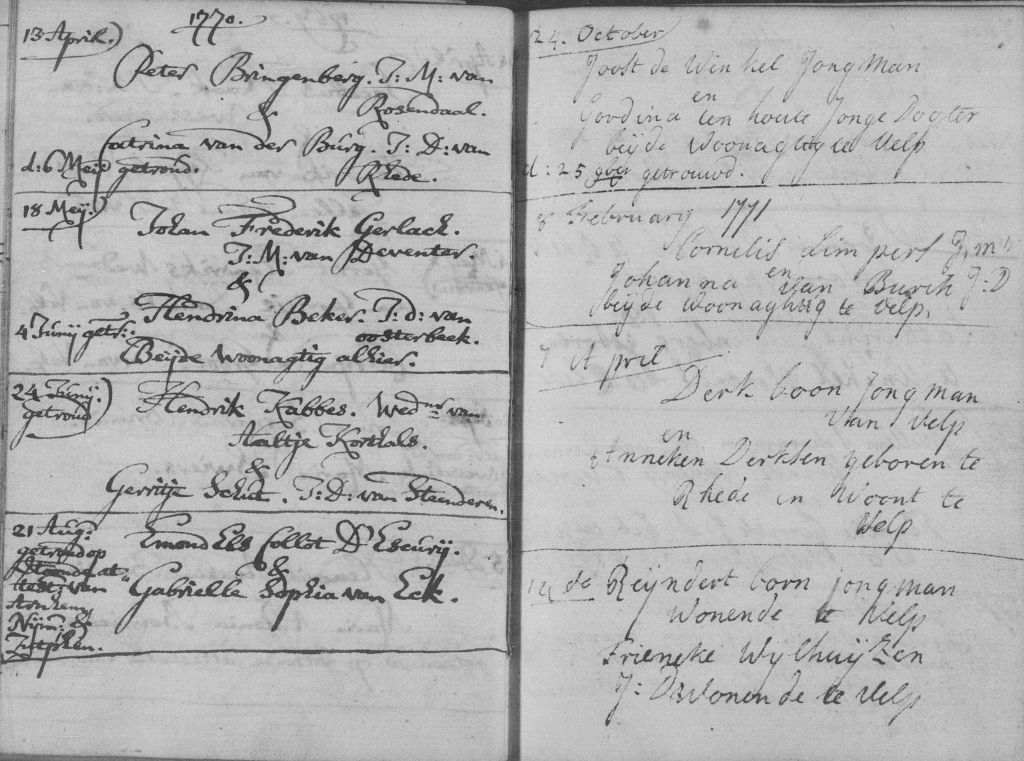 1770.
13 April.)
Peter Bringenberg. J: M: van
Rosendaal.
&
Catrina van der Burg. J: D: van
Rhede.
d: 6 Meij getroud.
18 Meij.
Johan Frederik Gerlach.
J: M: van Deventer.
&
Hendrina Beker. J: d: van
oosterbeek.
4 Junij getr:
Beijde woonagtig alhier.
24 Junij.
getroud)
Hendrik Kabbes. Wednr van
Aaltje Korthals.
&
Gerritje Schut. J: D: van Standeren.
21 Aug:
getroud op
attest: van
Arnhem,
Nijm: &
Zutphen.
Emond Els Collot D'Escurij.
&
Gabrielle Sophia van Eck.
24. October
Joost de Winkel Jong Man
en
Goodina ten houte Jonge Dogter
beijde Woonagtig te Velp
d: 25 getrouwd.
8 February 1771
Cornelis Limpers J; m
en
Johanna van Burch J: D
beijde woonaghtig te Velp.
7 April
Derk boon Jongman
Van Velp
en
Anneken Derksen geboren te
Rhede en Woont te
Velp
12 do Reijndert born jongman
Wonende te Velp
Frieneke Wylhuijzen
J: D Wonende te Velp